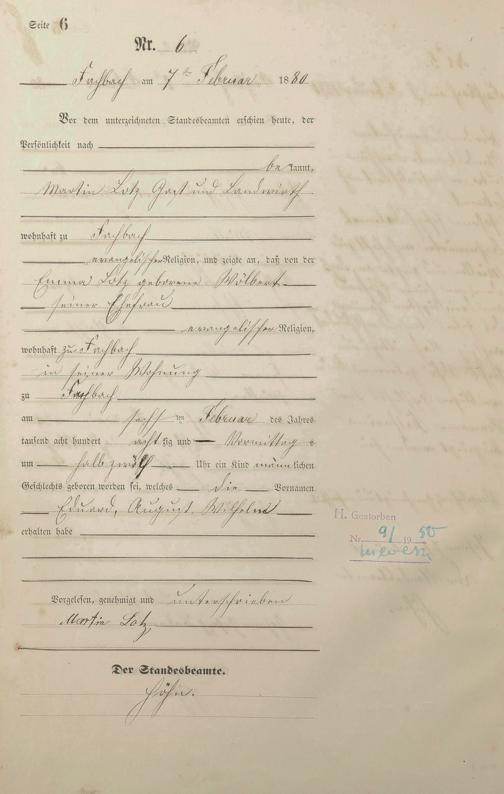 Seite 6
Nr. 6
Fachbach am 7ten Februar 1880
Vor dem unterzeichneten Standesbeamten erschien heute, der
Persönlichkeit nach
bekannt,
Martin Lotz Gast und Landwirth
wohnhaft zu Fachbach
evangelischer Religion, und zeigte an, daß von der
Emma Lotz geborene Wölbert
seiner Ehefrau
evangelischer Religion,
wohnhaft zu Fachbach
in seiner Wohnung
zu Fachbach
am sechs ten Februar des Jahres
tausend acht hundert acht zig und Vormittag s
um halb zwölf Uhr ein Kind männlichen
Geschlechts geboren worden sei, welches die Vornamen
Eduard, August Wilhelm
erhalten habe
H. Gestorben
Nr. 9/ 1950
Nievern
Vorgelesen, genehmigt und unterschrieben
Martin Lotz
Der Standesbeamte.
Höhn.